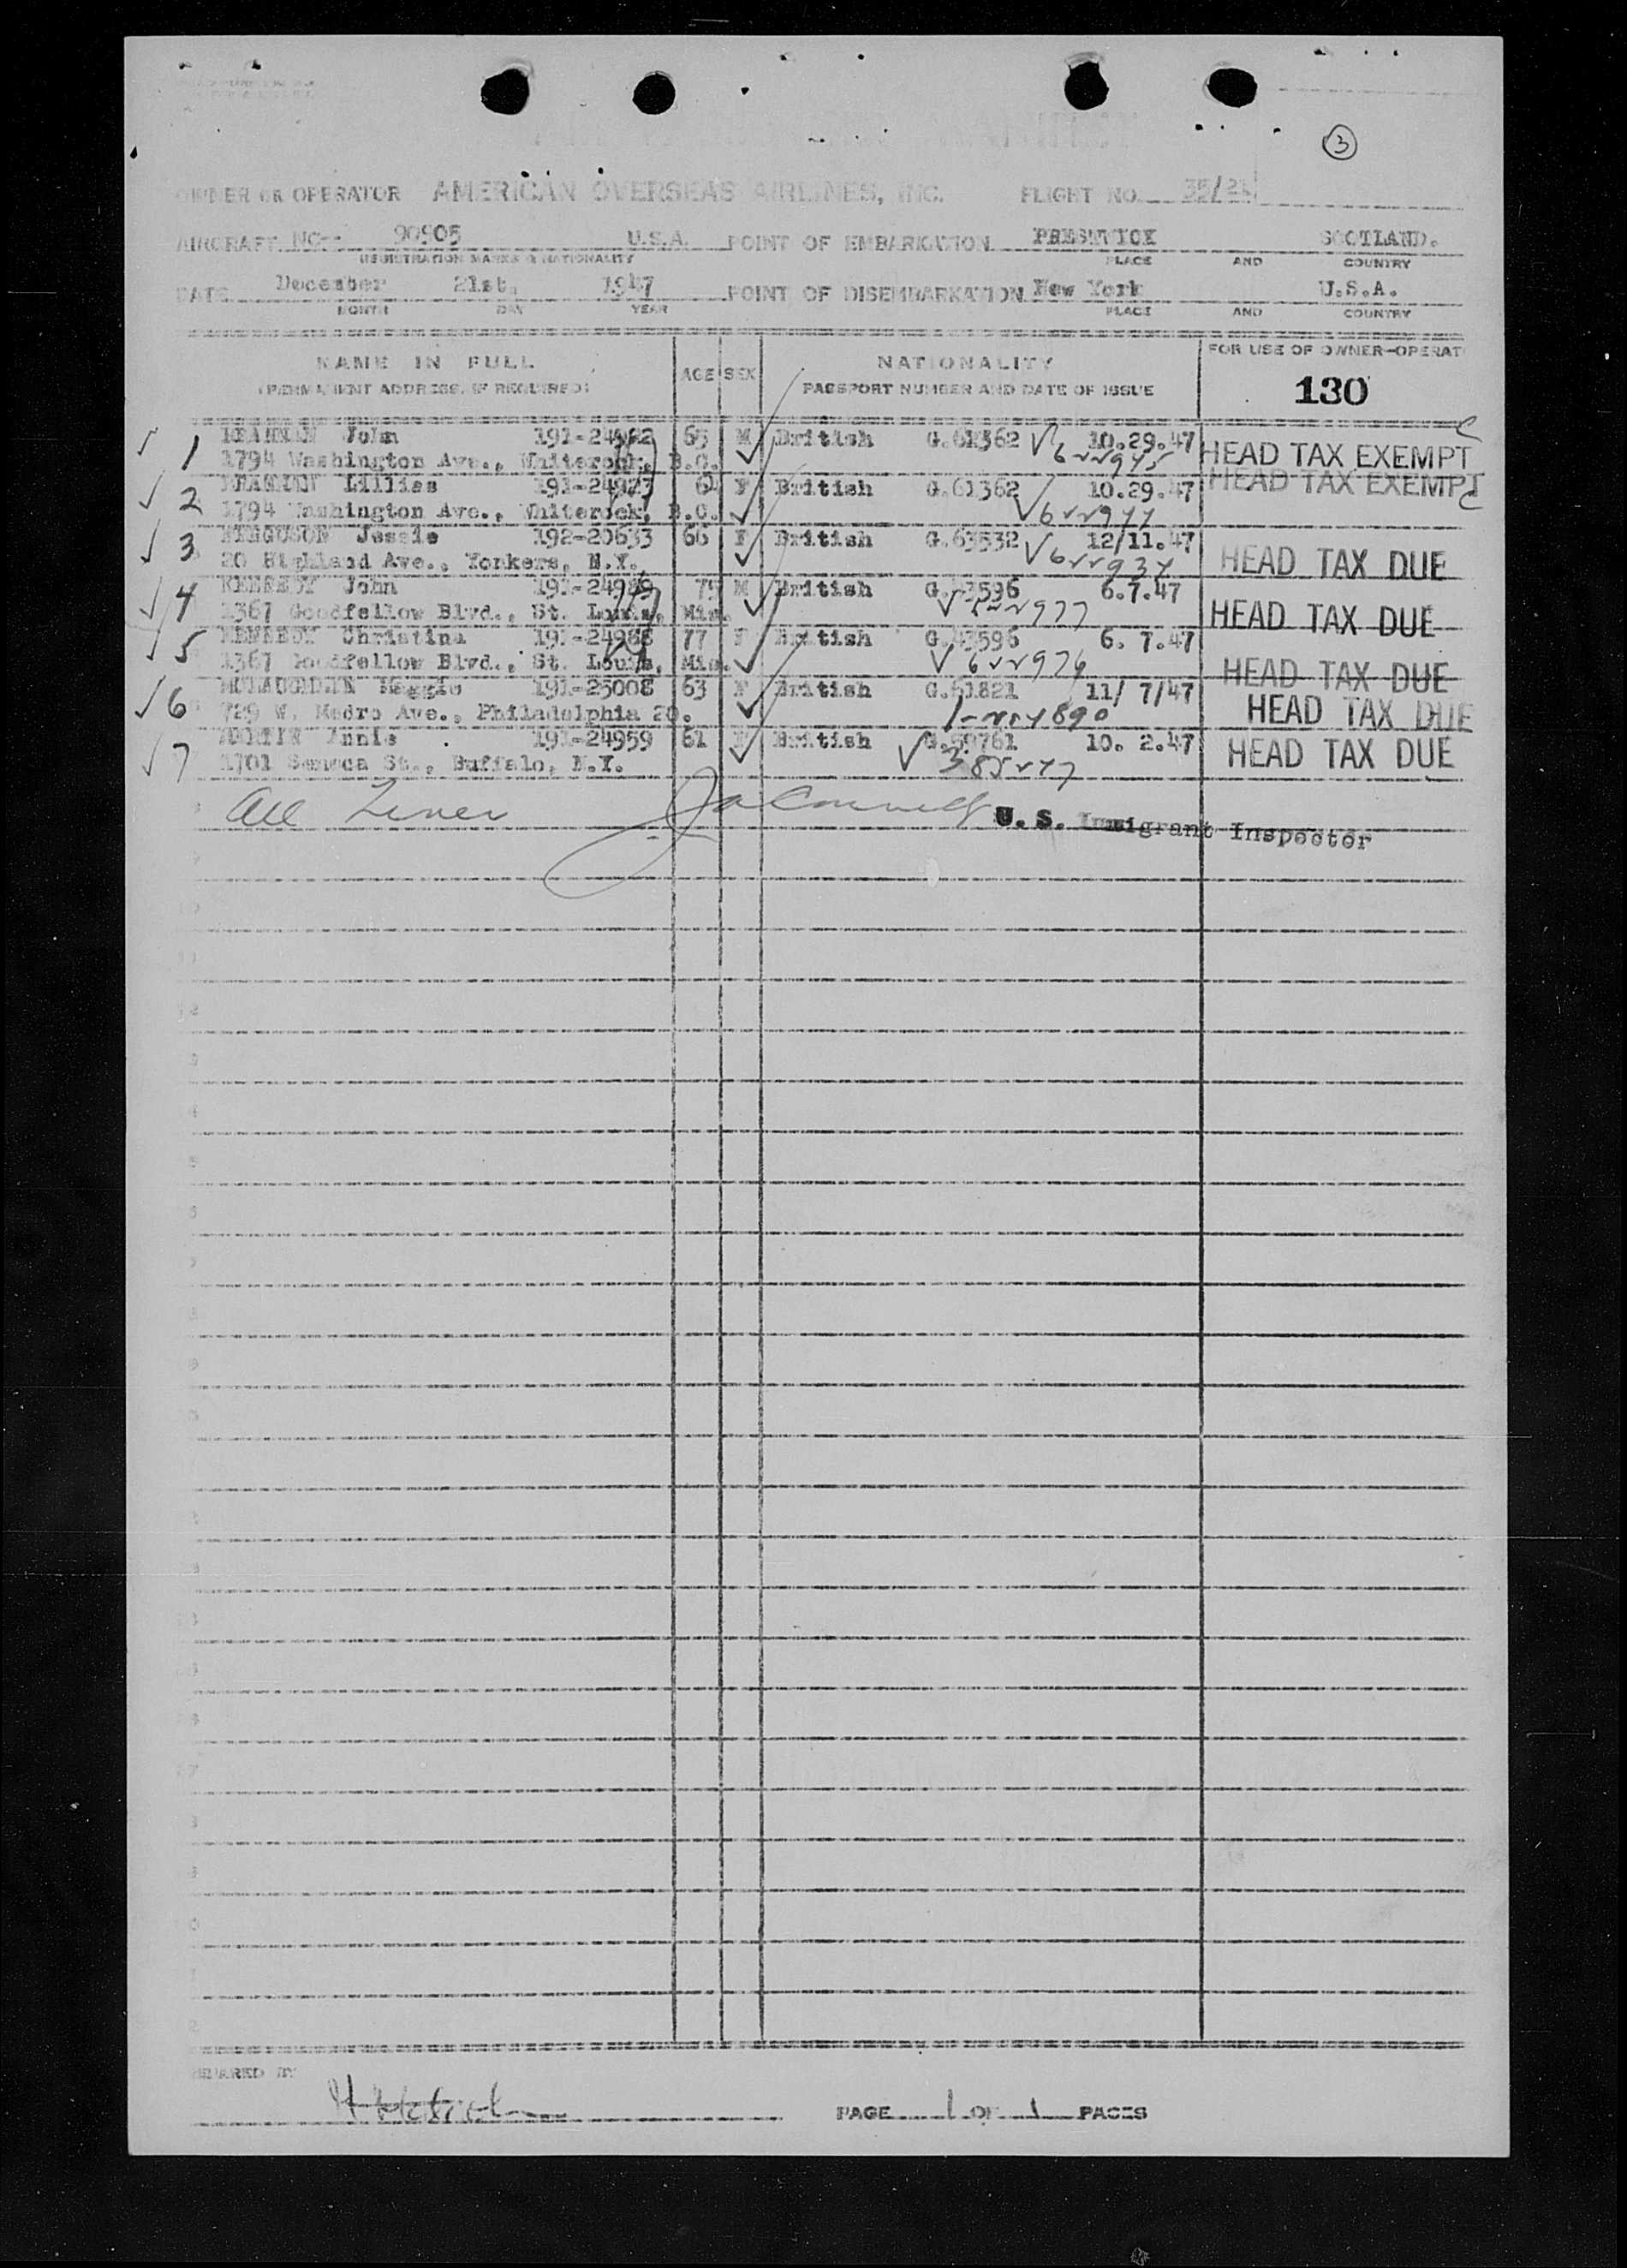 3
OWNER OR OPERATOR AMERICAN OVERSEAS AIRLINES, INC. FLIGHT NO. 35/21
AIRCRAFT NC-: 90905 U.S.A. POINT OF EMBARKATION PRESTWICK SCOTLAND.
REGISTRATION MARKS & NATIONALITY PLACE AND COUNTRY
DATE December 21st, 1947 POINT OF DISEMBARKATION New York U.S.A.
MONTH DAY YEAR PLACE AND COUNTRY
NAME IN FULL AGE SEX NATIONALITY FOR USE OF OWNER-OPERAT
(PERMANENT ADDRESS, IF REQUIRED) PASSPORT NUMBER AND DATE OF ISSUE 130
1 John 65 M British G.61362 10.29.47 HEAD TAX EXEMPT
1794 Washington Ave., Whiterock, B.C.
2 Lillias 191-24923 64 F British G.61362 10.29.47 HEAD TAX EXEMPT
1794 Washington Ave., Whiterock, B.C.
3 FERGUSON Jessie 192-20633 66 F British G.63532 12/11.47 HEAD TAX DUE
20 Highland Ave., Yonkers, N.Y.
4 KENNEDY John 191-24989 75 M British G.43596 6.7.47 HEAD TAX DUE
1367 Goodfellow Blvd., St. Louis, Mis.
5 KENNEDY Christina 191-24988 77 F British G.43596 6. 7.47 HEAD TAX DUE
1367 Goodfellow Blvd., St. Louis, Mis.
6 MCLAUGHLIN Maggie 191-25008 63 F British G.61821 11/ 7/47 HEAD TAX DUE
729 W. Ave., Philadelphia 20.
7 Annie 191-24959 61 F British G.59761 10. 2.47 HEAD TAX DUE
1701 Seneca St., Buffalo, N.Y.
All
U. S. Immigrant Inspector
PREPARED BY
PAGE 1 OF 1 PAGES